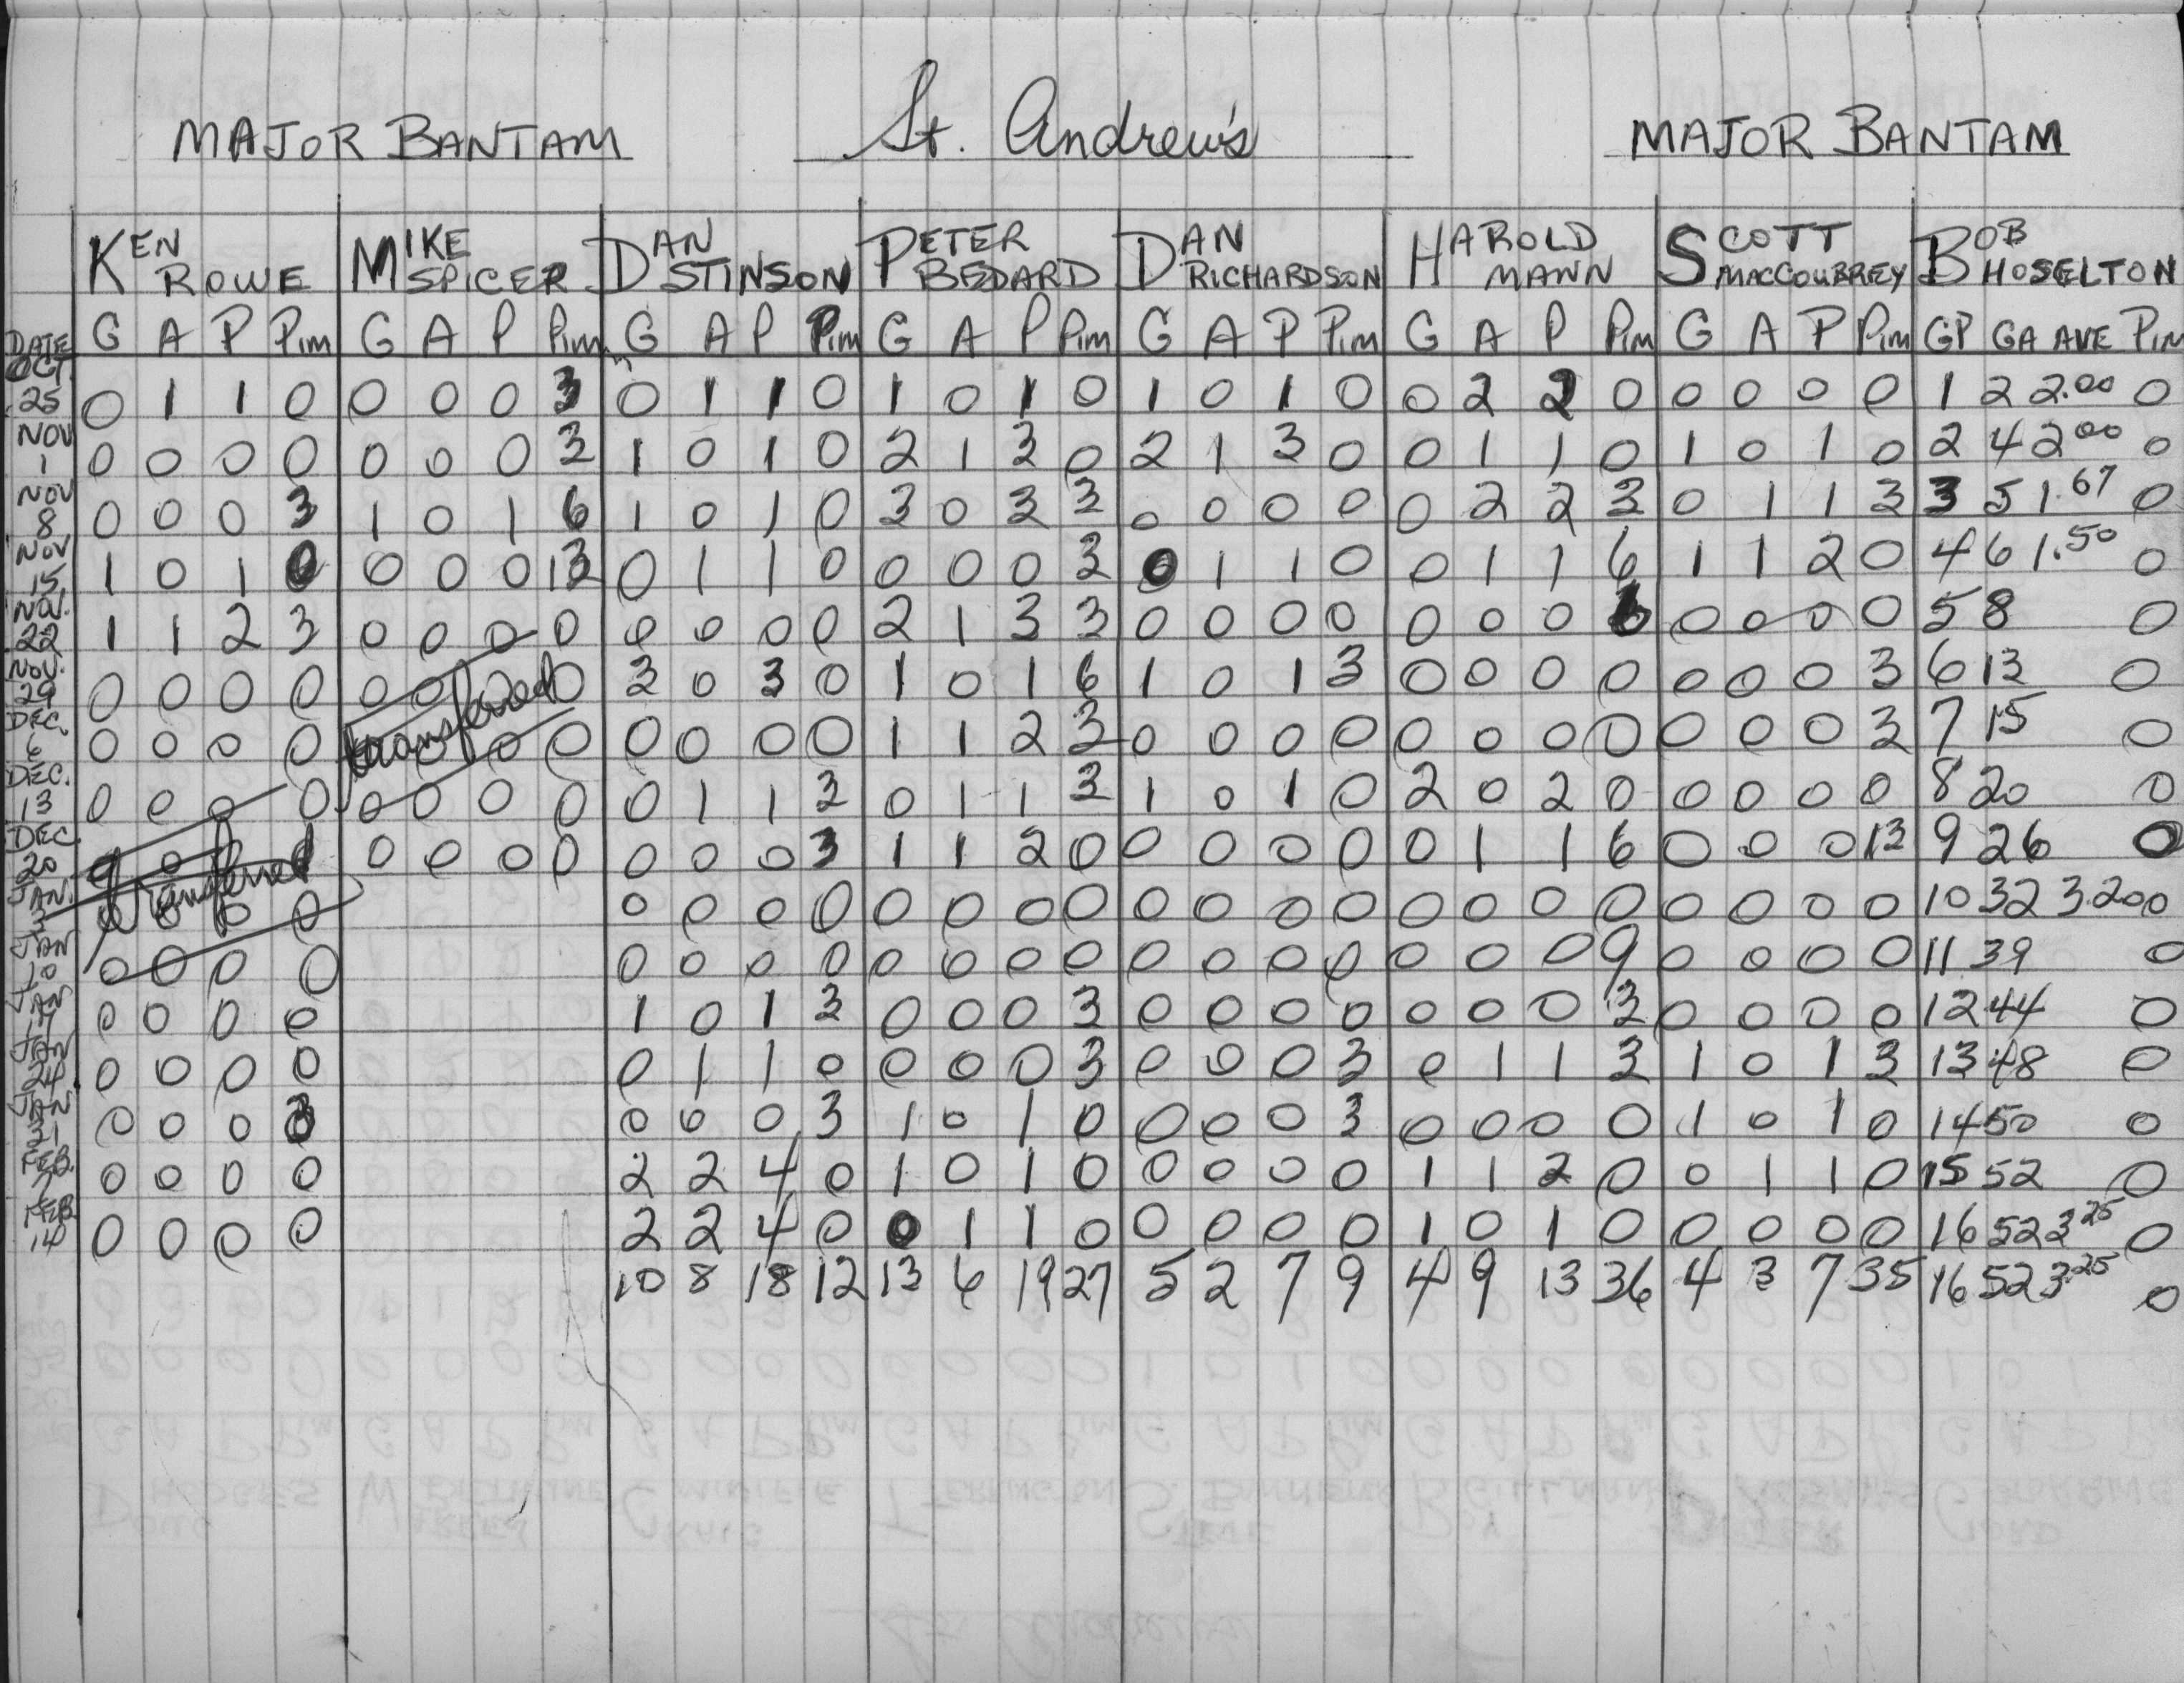 MAJOR BANTAM St. Andrew's MAJOR BANTAM
KEN ROWE MIKE SPICER DAN STINSON PETER BEDARD DAN RICHARDSON HAROLD MANN SCOTT MACCOUBREY BOB HOSELTON
DATE G A P Pim G A P Pim G A P Pim G A P Pim G A P Pim G A P Pim G A P Pim GP GA AVE Pim
OCT. 25 0 1 1 0 0 0 0 3 0 1 1 0 1 0 1 0 1 0 1 0 0 2 2 0 0 0 0 0 1 2 2.00 0
NOV 1 0 0 0 0 0 0 0 3 1 0 1 0 2 1 3 0 2 1 3 0 0 1 1 0 1 0 1 0 2 4 2.00 0
NOV 8 0 0 0 3 1 0 1 6 1 0 1 0 3 0 3 3 0 0 0 0 0 2 2 3 0 1 1 3 3 5 1.67 0
NOV 15 1 0 1 0 0 0 0 13 0 1 1 0 0 0 0 3 0 1 1 0 0 1 1 6 1 1 2 0 4 6 1.50 0
NOV. 22 1 1 2 3 0 0 0 0 0 0 0 0 2 1 3 3 0 0 0 0 0 0 0 6 0 0 0 0 5 8 0
NOV. 29 0 0 0 0 0 0 0 0 3 0 3 0 1 0 1 6 1 0 1 3 0 0 0 0 0 0 0 3 6 13 0
transferred
DEC. 6 0 0 0 0 0 0 0 0 0 0 0 0 1 1 2 3 0 0 0 0 0 0 0 0 0 0 0 3 7 15 0
DEC. 13 0 0 0 0 0 0 0 0 0 1 1 3 0 1 1 3 1 0 1 0 2 0 2 0 0 0 0 0 8 20 0
DEC 20 0 0 0 0 0 0 0 0 0 0 3 1 1 2 0 0 0 0 0 0 1 1 6 0 0 0 13 9 26 0
transferred
JAN. 3 0 0 0 0 0 0 0 0 0 0 0 0 0 0 0 0 0 0 0 0 0 0 0 0 10 32 3.20 0
JAN 10 0 0 0 0 0 0 0 0 0 0 0 0 0 0 0 0 0 0 0 9 0 0 0 0 11 39 0
JAN 17 0 0 0 0 1 0 1 3 0 0 0 3 0 0 0 0 0 0 0 3 0 0 0 0 12 44 0
JAN 24 0 0 0 0 0 1 1 0 0 0 0 3 0 0 0 3 0 1 1 3 1 0 1 3 13 48 0
JAN 31 0 0 0 3 0 0 0 3 1 0 1 0 0 0 0 3 0 0 0 0 1 0 1 0 14 50 0
FEB. 7 0 0 0 0 2 2 4 0 1 0 1 0 0 0 0 0 1 1 2 0 0 1 1 0 15 52 0
FEB. 14 0 0 0 0 2 2 4 0 0 1 1 0 0 0 0 0 1 0 1 0 0 0 0 0 16 52 3.25 0
10 8 18 12 13 6 19 27 5 2 7 9 4 9 13 36 4 3 7 35 16 52 3.25 0